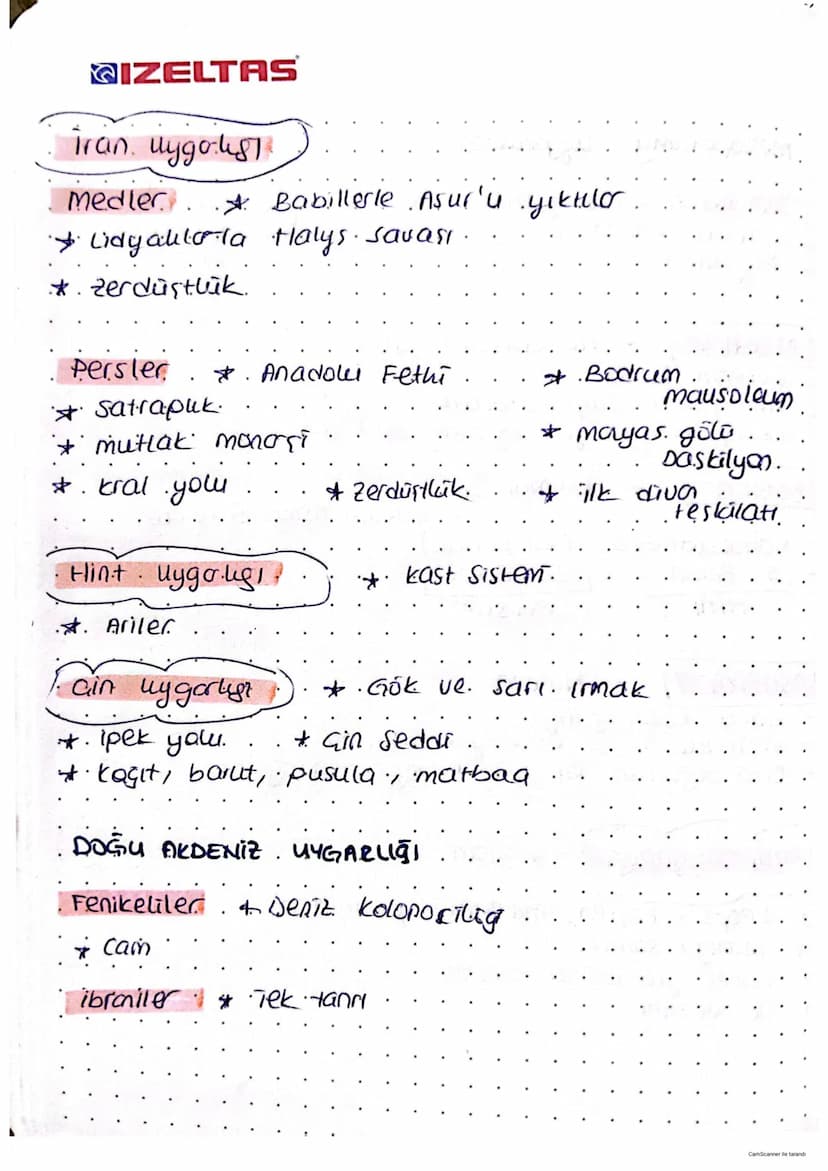 IZELTAS
İran uygarlığı
Medler * Babillerle Asur'u yıktılar
* Lidyalılarla Halys savası
* Zerdüştlük
Persler * Anadolu Fethi * Bodrum mausoleum
* satraplık
* mutlak monarşi * manyas gölü Daskilyon
* kral yolu * Zerdüştlük * ilk divan teskilatı
Hint uygarlıgı * kast sistemi
* Ariler
Çin uygarlıgı * Gök ve sarı ırmak
* ipek yolu * Çin seddi
* Kağıt, barut, pusula, matbaa
DOĞU AKDENİZ UYGARLIĞI
Fenikeliler * Deniz kolonaciligi
* Cam
ibraniler * Tek tanrı
CamScanner ile tarandı